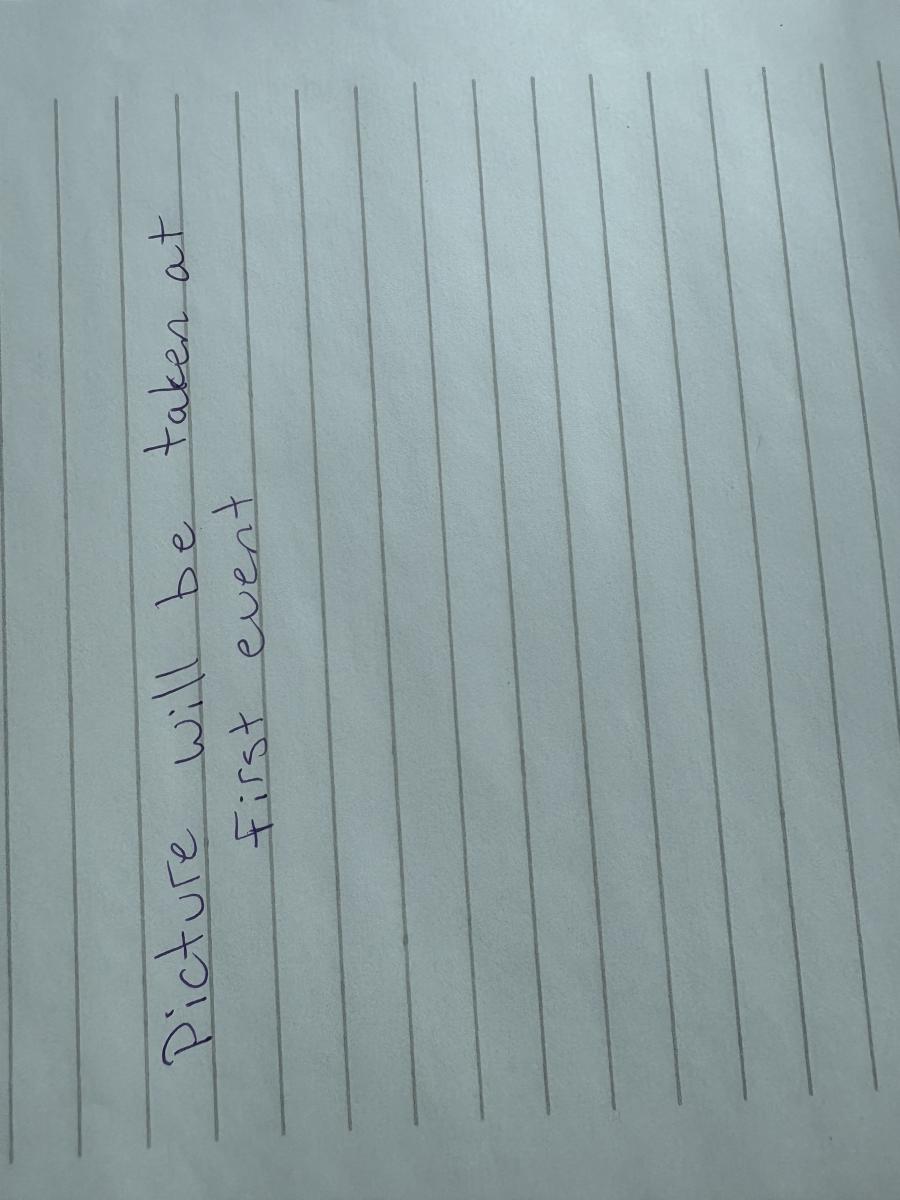 Picture will be taken at
First event